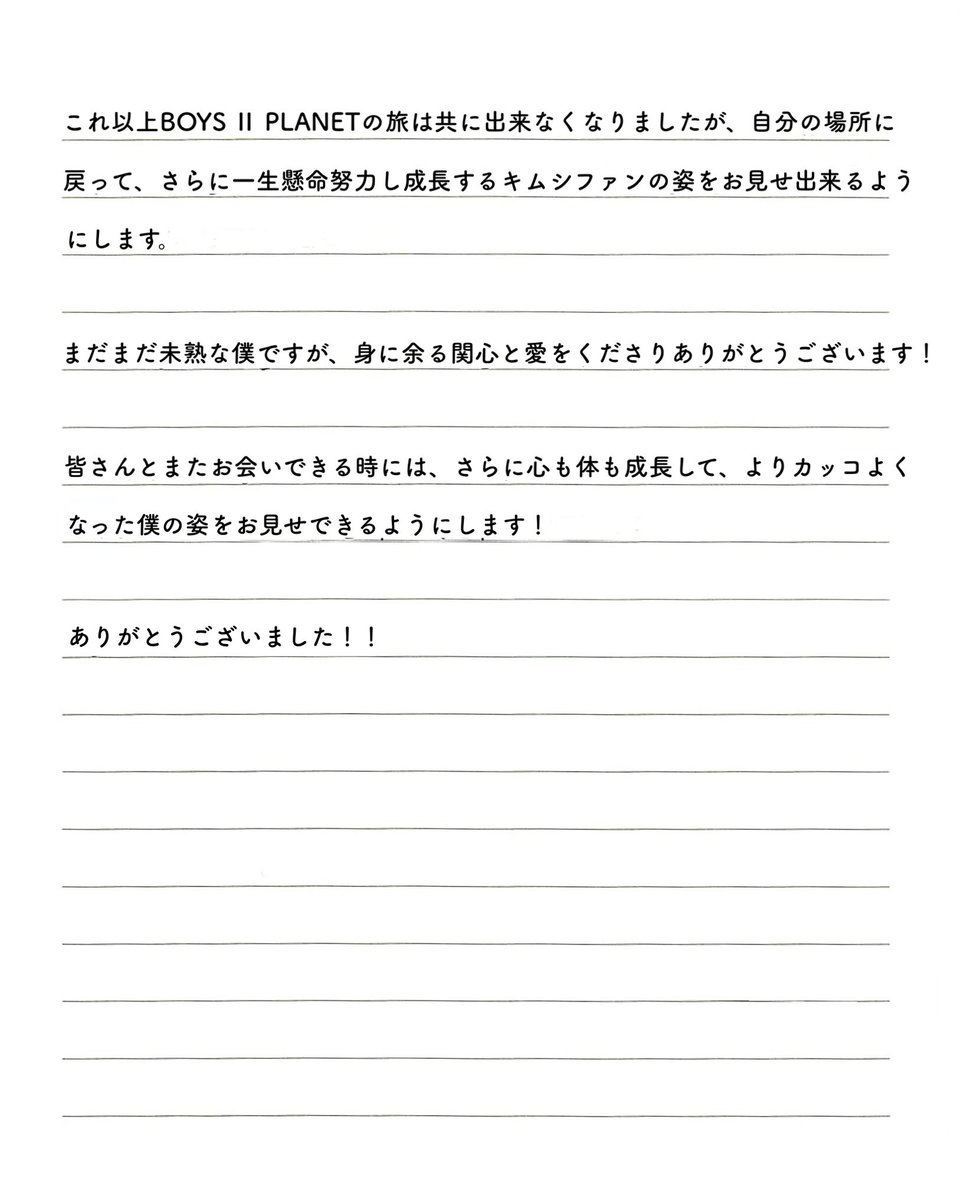 これ以上BOYS II PLANETの旅は共に出来なくなりましたが、自分の場所に
戻って、さらに一生懸命努力し成長するキムシファンの姿をお見せ出来るよう
にします。
まだまだ未熟な僕ですが、身に余る関心と愛をくださりありがとうございます！
皆さんとまたお会いできる時には、さらに心も体も成長して、よりカッコよく
なった僕の姿をお見せできるようにします！
ありがとうございました！！